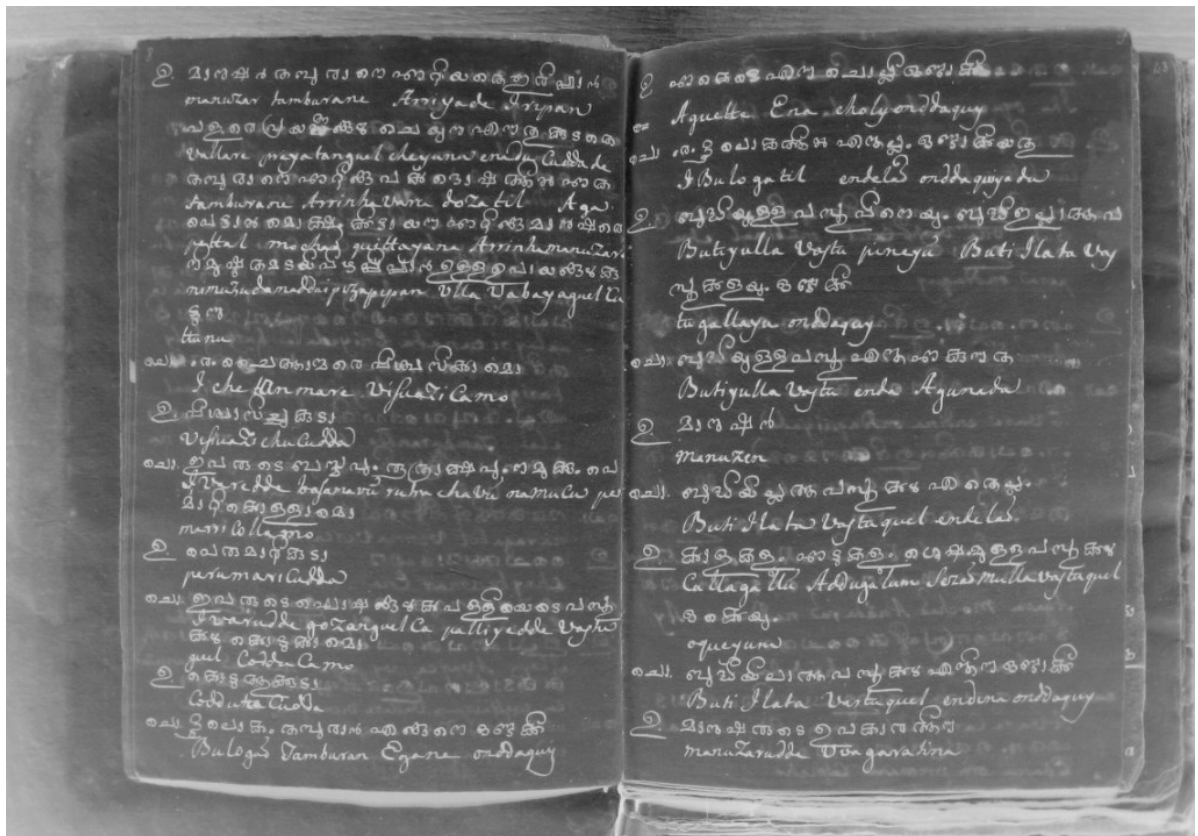 ഉ. മാനുഷർ തമ്പുരാനെ അറിയതെ ഇരിപ്പാൻ
manuzar tamburane Arriyade Iripan
വളരെ പ്രയത്നങ്ങൾ ചെയ്യുന്നു എന്നതു കൂടതെ
vallare preyatanguel cheyuna enadu Cuddade
തമ്പുരാനെ അറിഞ്ഞവൎക്ക ദൊഷത്തിൽ അത
tamburane Arrinhavane dozatil Aga
പെട്ടാൽ മൊക്ഷം കിട്ടായന്ന അറിഞ്ഞു മാനുഷരെ
pettal mochas quittayana Arrinha manuzare
ulla Vabayaguel Cu
ട്ടുന്നു
ttunu
ചൊ. ൟ ചെത്താന്മരെ വിശ്വസിക്കാമൊ
I chettanmare Visuazi Camo
ഉ. വിശ്വസിച്ചു കൂടാ
Visuazichu Cudda
ചൊ. ഇവരുടെ ബാസനവും രുദ്രാക്ഷവും നമുക്കു പെ
Ivaredde basanavu rudra chavu namucu per
മാറികൊള്ളാമൊ
marri Collamo
ഉ. പെരുമാറികൂടാ
perumari Cudda
ചൊ. ഇവരുടെ ഘൊഷങ്ങൾക്ക പള്ളിയെടെ വസ്തു
Ivarudde gozanguel Ca palliyedde Vastu
ക്കൾ കൊടുക്കാമൊ
guel Coddu Camo
ഉ. കൊടുത്തുകൂടാ
Coddutu Cudda
ചൊ. ഭൂലൊകം തമ്പുരാൻ എങ്ങനെ ഉണ്ടാക്കി
Bulogas Tamburan Egane onddaquy
ഉ. ആകട്ടെ എന്ന ചൊല്ലി ഉണ്ടാക്കി
Aquette Ena choly onddaquy
ചൊ. ൟ ഭൂലൊകത്തിൽ എന്തെല്ലാം ഉണ്ടാക്കിയതു
I Bulo gatil endelas onddaquiyadu
ഉ. ബുധിയുള്ള വസ്തുവിനെയും ബുധി ഇല്ലാത്ത വ
Butiyulla Vastu vineyu Buti Ilata Vas
സ്തുക്കളയും ഉണ്ടാക്കി
tugallayu onddaquy
ചൊ. ബുധിയുള്ള വസ്തു എന്ത ആകുന്നത
Butiyulla Vastu enda Aguneda
ഉ. മാനുഷൻ
manuzen
ചൊ. ബുധിയില്ലാത്ത വസ്തുക്കൾ എന്തെല്ലാം
Buti Ilata Vastuquel endelas
ഉ. കാളകളും ആടുകളും ശെഷമുള്ള വസ്തുക്കൾ
Callaga llu Addugalum Sezas mulla vastuquel
ഒക്കെയും
oqueyuna
ചൊ. ബുധിയില്ലാത്ത വസ്തുക്കൾ എന്തിന ഉണ്ടാക്കി
Buti Ilata Vastuquel endina onddaquy
ഉ. മാനുഷരുടെ ഉവകാരത്തിന
manuzarudde Uvagaratina